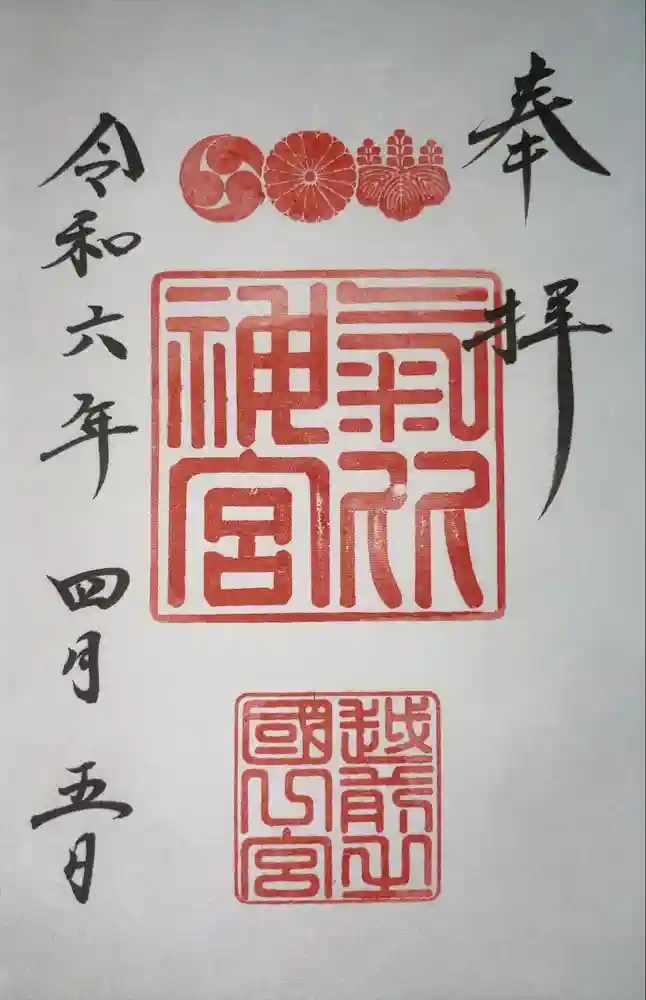 奉拝
氣比
神宮
越前之
國宮
令和六年四月五日